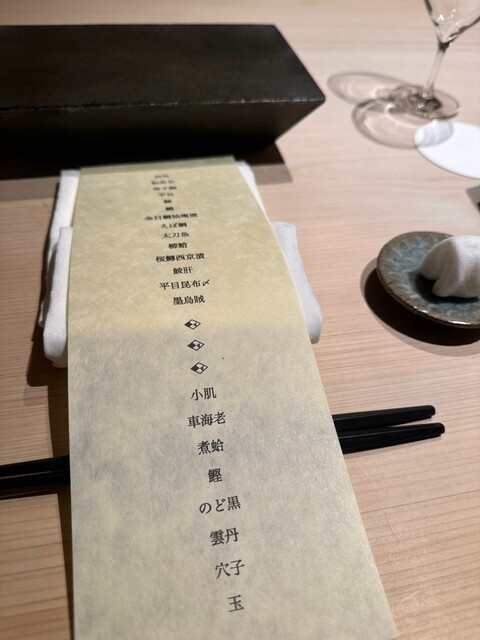 平目
金目鯛柚庵漬
えぼ鯛
太刀魚
柳蛸
桜鱒西京漬
鮟肝
平目昆布〆
墨烏賊
小肌
車海老
煮蛤
鰹
のど黒
雲丹
穴子
玉